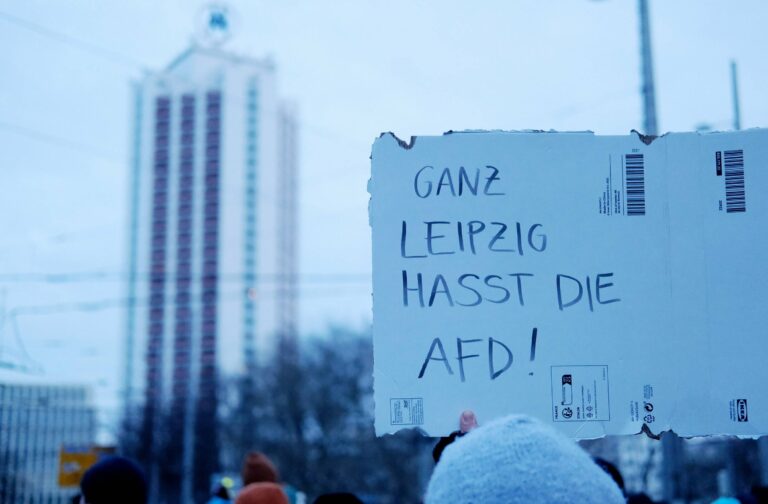 GANZ
LEIPZIG
HASST DIE
AFD!